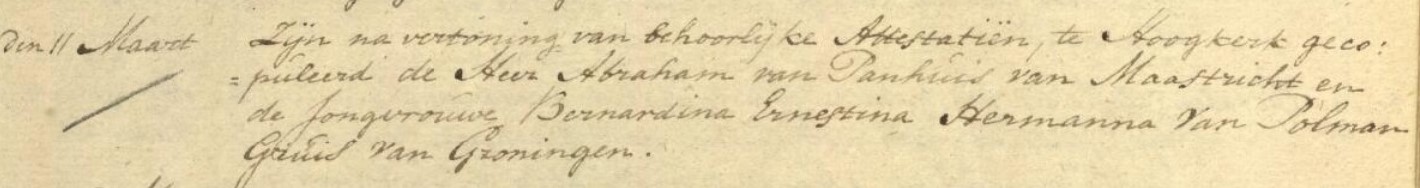 Den 11 Maart Zijn na vertoning van behoorlijke Attestatiën, te Hoogkerk geco:
=puleerd de Heer Abraham van Panhuis van Maastricht en
de Jongvrouwe Bernardina Ernestina Hermanna van Polman
Gruis van Groningen.